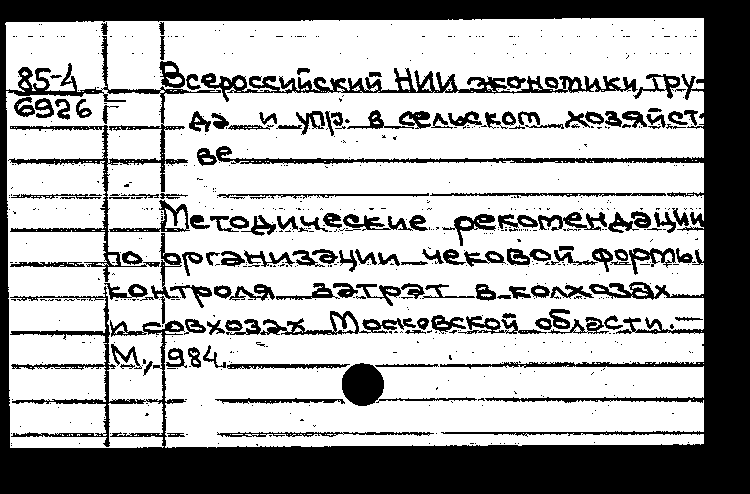 85-4
6926
Всероссийский НИИ экономики, тру-
да и упр. в сельском хозяйст-
ве
Методические рекомендации
по организации чековой формы
контроля затрат в колхозах
и совхозах Московской области.—
М., 1984.